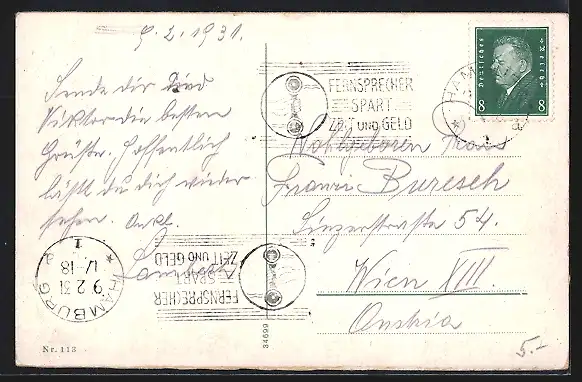 9.2.1931.
Sende dir und
Viktor die besten
Grüße. Hoffentlich
läßt du dich wieder
sehen.
Deutsches Reich
8 8
FERNSPRECHER
SPART
ZEIT UND GELD
HAM
Wohlgeboren Frau
Franzi Buresch
Linzerstraße 54.
Wien XIII.
Austria
FERNSPRECHER
SPART
ZEIT UND GELD
HAMBURG
9 2 31
17-18
1
34699
Nr. 113
5.-